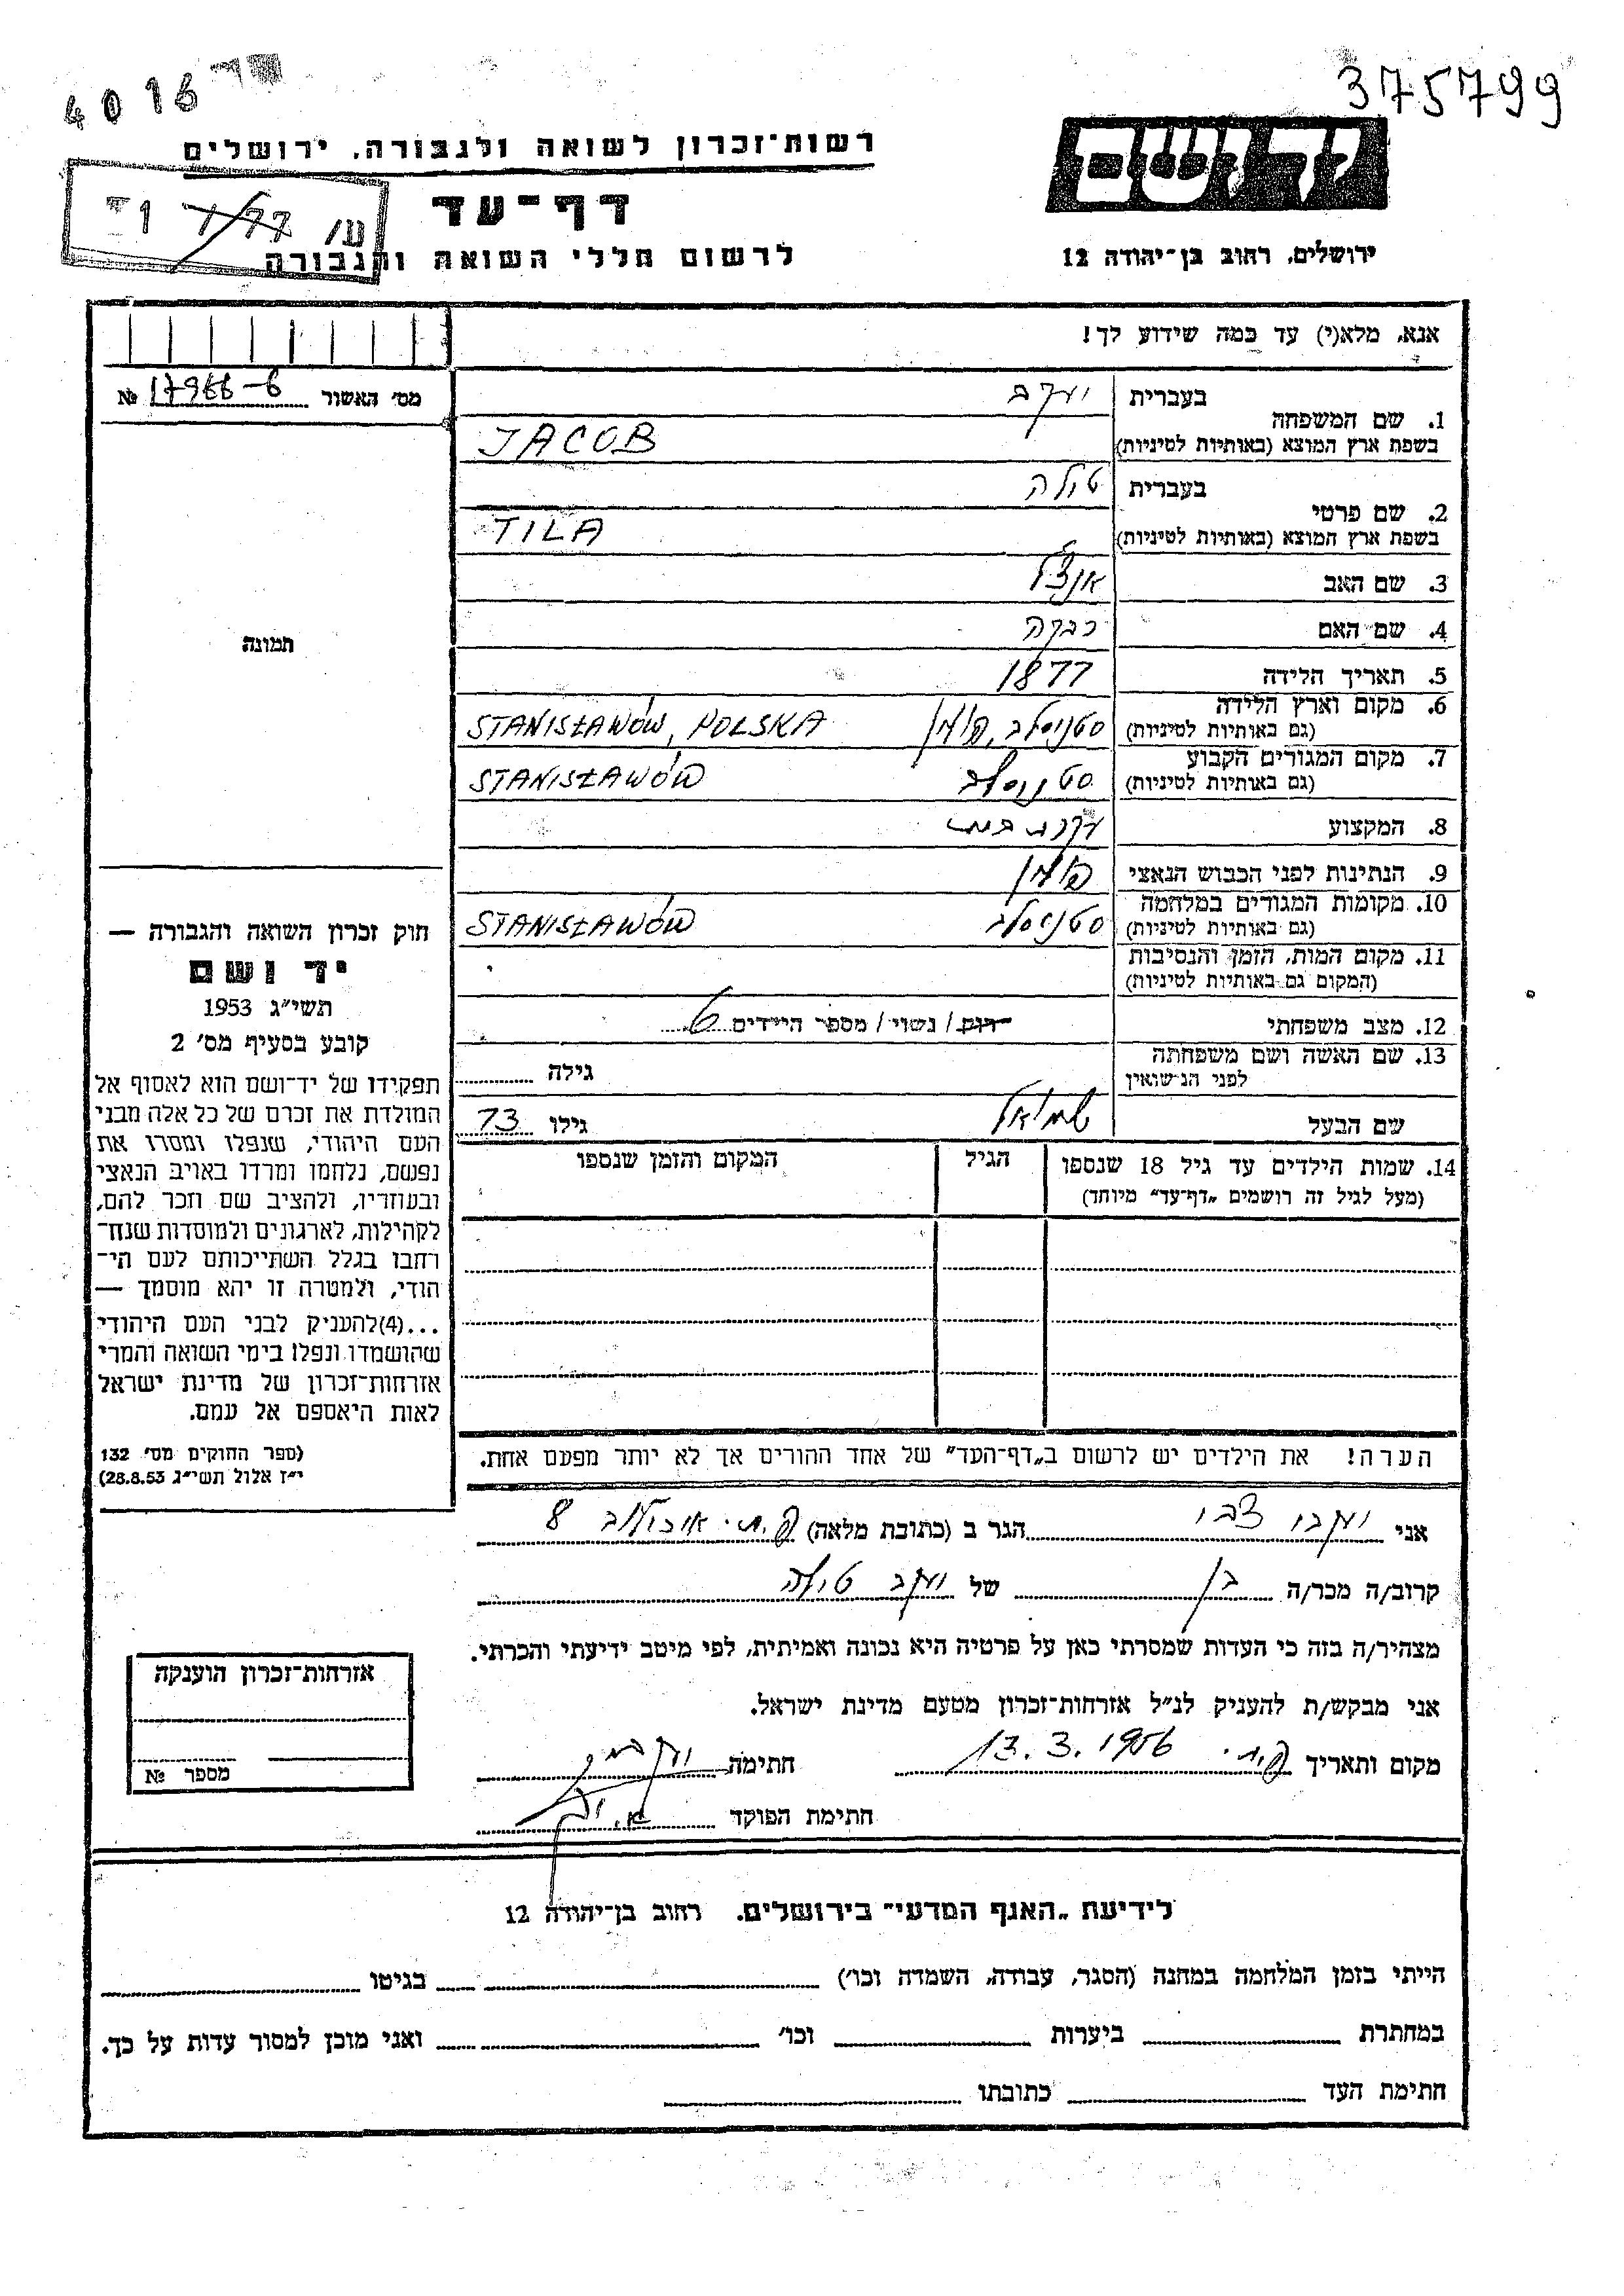 375799
4016
יד ושם
רשות־זכרון לשואה ולגבורה, ירושלים
דף־עד
לרשום חללי השואה והגבורה
ירושלים, רחוב בן־יהודה 12
אנא, מלא(י) עד כמה שידוע לך!
מס׳ האשור 17966-6 №
1. שם המשפחה
בעברית יעקב
בשפת ארץ המוצא (באותיות לטיניות) JACOB
2. שם פרטי
בעברית טילה
בשפת ארץ המוצא (באותיות לטיניות) TILA
3. שם האב אנצל
4. שם האם רבקה
5. תאריך הלידה 1877
6. מקום וארץ הלידה (גם באותיות לטיניות) סטניסלב, פולין STANISŁAWÓW, POLSKA
7. מקום המגורים הקבוע (גם באותיות לטיניות) סטניסלב STANISŁAWÓW
8. המקצוע עקרת בית
9. הנתינות לפני הכבוש הנאצי פולין
10. מקומות המגורים במלחמה (גם באותיות לטיניות) סטניסלב STANISŁAWÓW
11. מקום המות, הזמן והנסיבות (המקום גם באותיות לטיניות)
12. מצב משפחתי רווק / נשוי / מספר הילדים 6
13. שם האשה ושם משפחתה לפני הנישואין גילה
שם הבעל שמואל גילו 73
14. שמות הילדים עד גיל 18 שנספו
(מעל לגיל זה רושמים „דף־עד” מיוחד)
הגיל
המקום והזמן שנספו
הערה! את הילדים יש לרשום ב„דף־העד” של אחד ההורים אך לא יותר מפעם אחת.
תמונה
חוק זכרון השואה והגבורה —
יד ושם
תשי״ג 1953
קובע בסעיף מס׳ 2
תפקידו של יד־ושם הוא לאסוף אל
המולדת את זכרם של כל אלה מבני
העם היהודי, שנפלו ומסרו את
נפשם, נלחמו ומרדו באויב הנאצי
ובעוזריו, ולהציב שם וזכר להם,
לקהילות, לארגונים ולמוסדות שנח־
רבו בגלל השתייכותם לעם הי־
הודי, ולמטרה זו יהא מוסמך —
...(4)להעניק לבני העם היהודי
שהושמדו ונפלו בימי השואה והמרי
אזרחות־זכרון של מדינת ישראל
לאות היאספם אל עמם.
(ספר החוקים מס׳ 132
י״ז אלול תשי״ג 28.8.53)
אני יעקבי צבי הגר ב (כתובת מלאה) פ.ת. 8
קרוב/ה מכר/ה בן של יעקב טילה
מצהיר/ה בזה כי העדות שמסרתי כאן על פרטיה היא נכונה ואמיתית, לפי מיטב ידיעתי והכרתי.
אני מבקש/ת להעניק לנ״ל אזרחות־זכרון מטעם מדינת ישראל.
מקום ותאריך פ.ת. 13.3.1956 חתימה
חתימת הפוקד
אזרחות־זכרון הוענקה
מספר №
לידיעת „האגף המדעי” בירושלים, רחוב בן־יהודה 12
הייתי בזמן המלחמה במחנה (הסגר, עבודה, השמדה וכו׳) בגיטו
במחתרת ביערות וכו׳ ואני מוכן למסור עדות על כך.
חתימת העד כתובתו